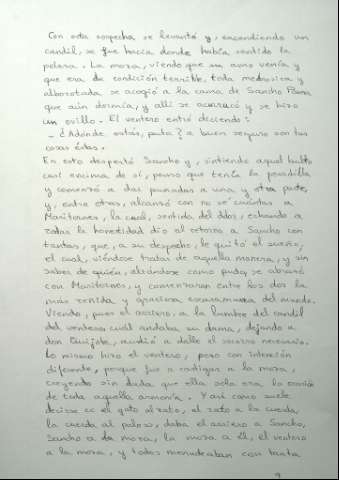 Con esta sospecha se levantó y, encendiendo un
candil, se fue hacia donde había sentido la
pelaza. La moza, viendo que su amo venía y
que era de condición terrible, toda medrosica y
alborotada se acogió a la cama de Sancho Panza
que aún dormía, y allí se acorrucó y se hizo
un ovillo. El ventero entró diciendo:
- ¿Adónde estás, puta? a buen seguro son tus
cosas éstas.
En esto despertó Sancho y, sintiendo aquel bulto
casi encima de sí, pensó que tenía la pesadilla
y comenzó a dar puñadas a una y otra parte,
y, entre otras, alcanzó con no sé cuántas a
Maritornes, la cual, sentida del dolor, echando a
rodar la honestidad dio el retorno a Sancho con
tantas, que, a su despecho, le quitó el sueño,
el cual, viéndose tratar de aquella manera, y sin
saber de quién, alzándose como pudo, se abrazó
con Maritornes, y comenzaron entre los dos la
más reñida y graciosa escaramuza del mundo.
Viendo, pues el arriero, a la lumbre del candil
del ventero cuál andaba su dama, dejando a
don Quijote, acudió a dalle el socorro necesario.
Lo mismo hizo el ventero, pero con intención
diferente, porque fue a castigar a la moza,
creyendo sin duda que ella sola era la ocasión
de toda aquella armonía. Y así como suele
decirse el gato al rato, el rato a la cuerda,
la cuerda al palo, daba el arriero a Sancho,
Sancho a la moza, la moza a él, el ventero
a la moza, y todos menudeaban con tanta